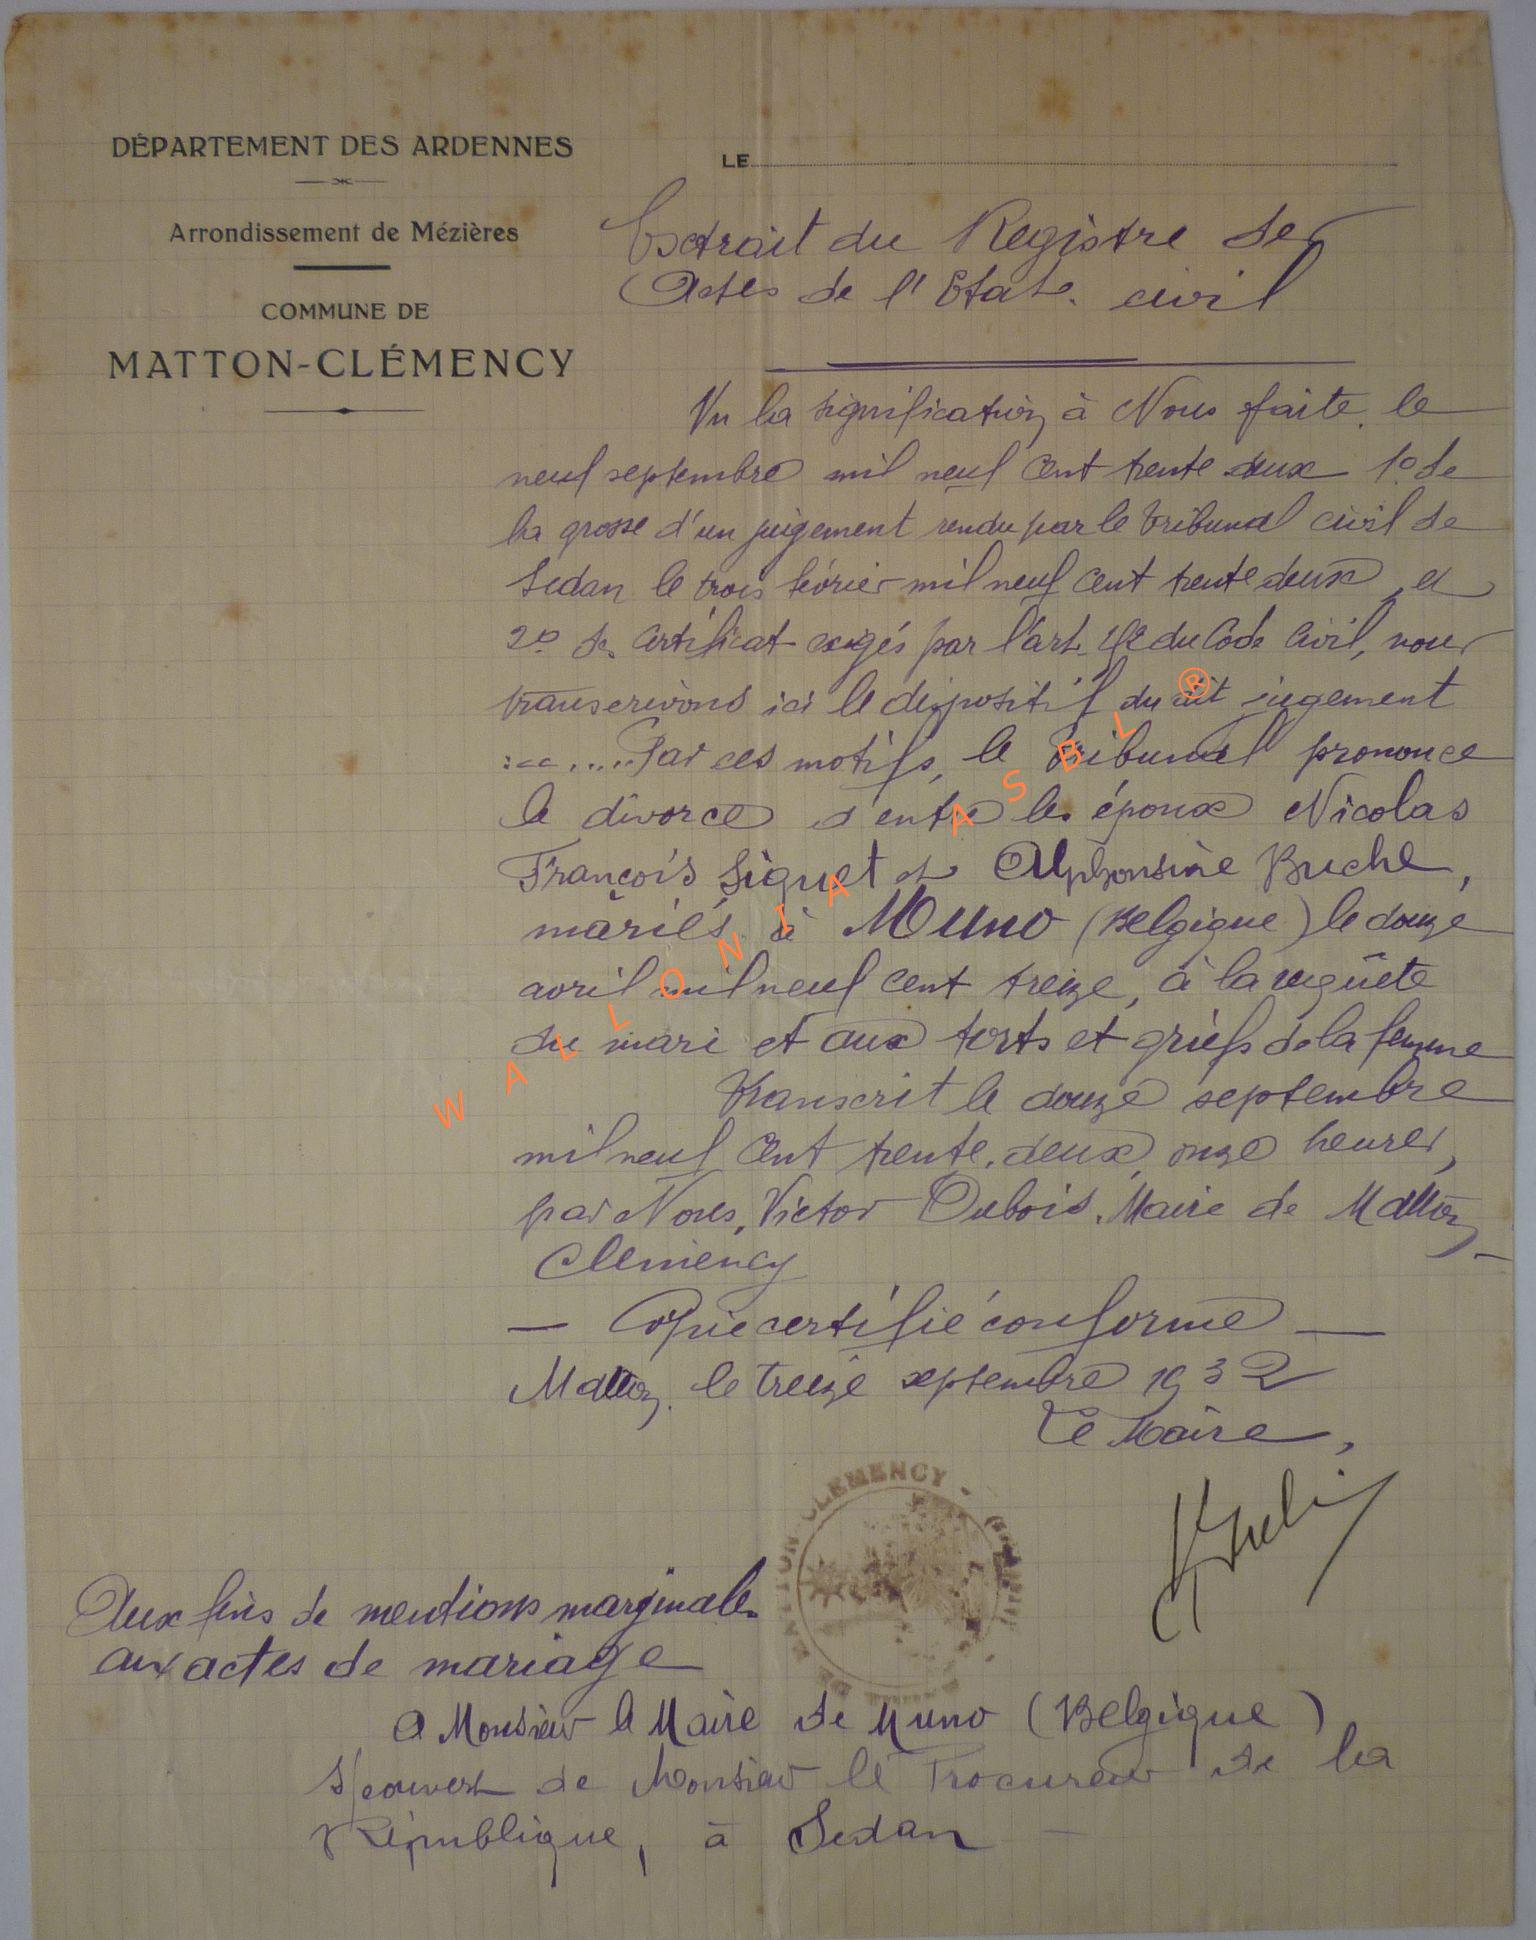 DÉPARTEMENT DES ARDENNES
Arrondissement de Mézières
COMMUNE DE
MATTON-CLÉMENCY
LE
Extrait du Registre des
Actes de l'Etat civil
Vu la signification à Nous faite, le
neuf septembre mil neuf cent trente deux 1º de
la grosse d'un jugement rendu par le tribunal civil de
Sedan le trois février mil neuf cent trente deux, et
2º de certificat exigés par l'art. du Code Civil, nous
transcrivons ici le dispositif du dit jugement
:.... Par ces motifs, le tribunal prononce
le divorce d'entre les époux Nicolas
François Siquet et Alphonsine Buche,
mariés à Muno (Belgique) le douze
avril mil neuf cent treize, à la requête
du mari et aux torts et griefs de la femme
Transcrit le douze septembre
mil neuf cent trente-deux, onze heures,
par Nous, Victor Dubois, Maire de Matton-
Clemency
— Copie certifié conforme —
Matton, le treize septembre 1932
Le Maire,
MATTON-CLEMENCY
Aux fins de mentions marginales
aux actes de mariage
A Monsieur le Maire de Muno (Belgique)
s/couvert de Monsieur le Procureur de la
République, à Sedan
WALLONIA ASBL ®